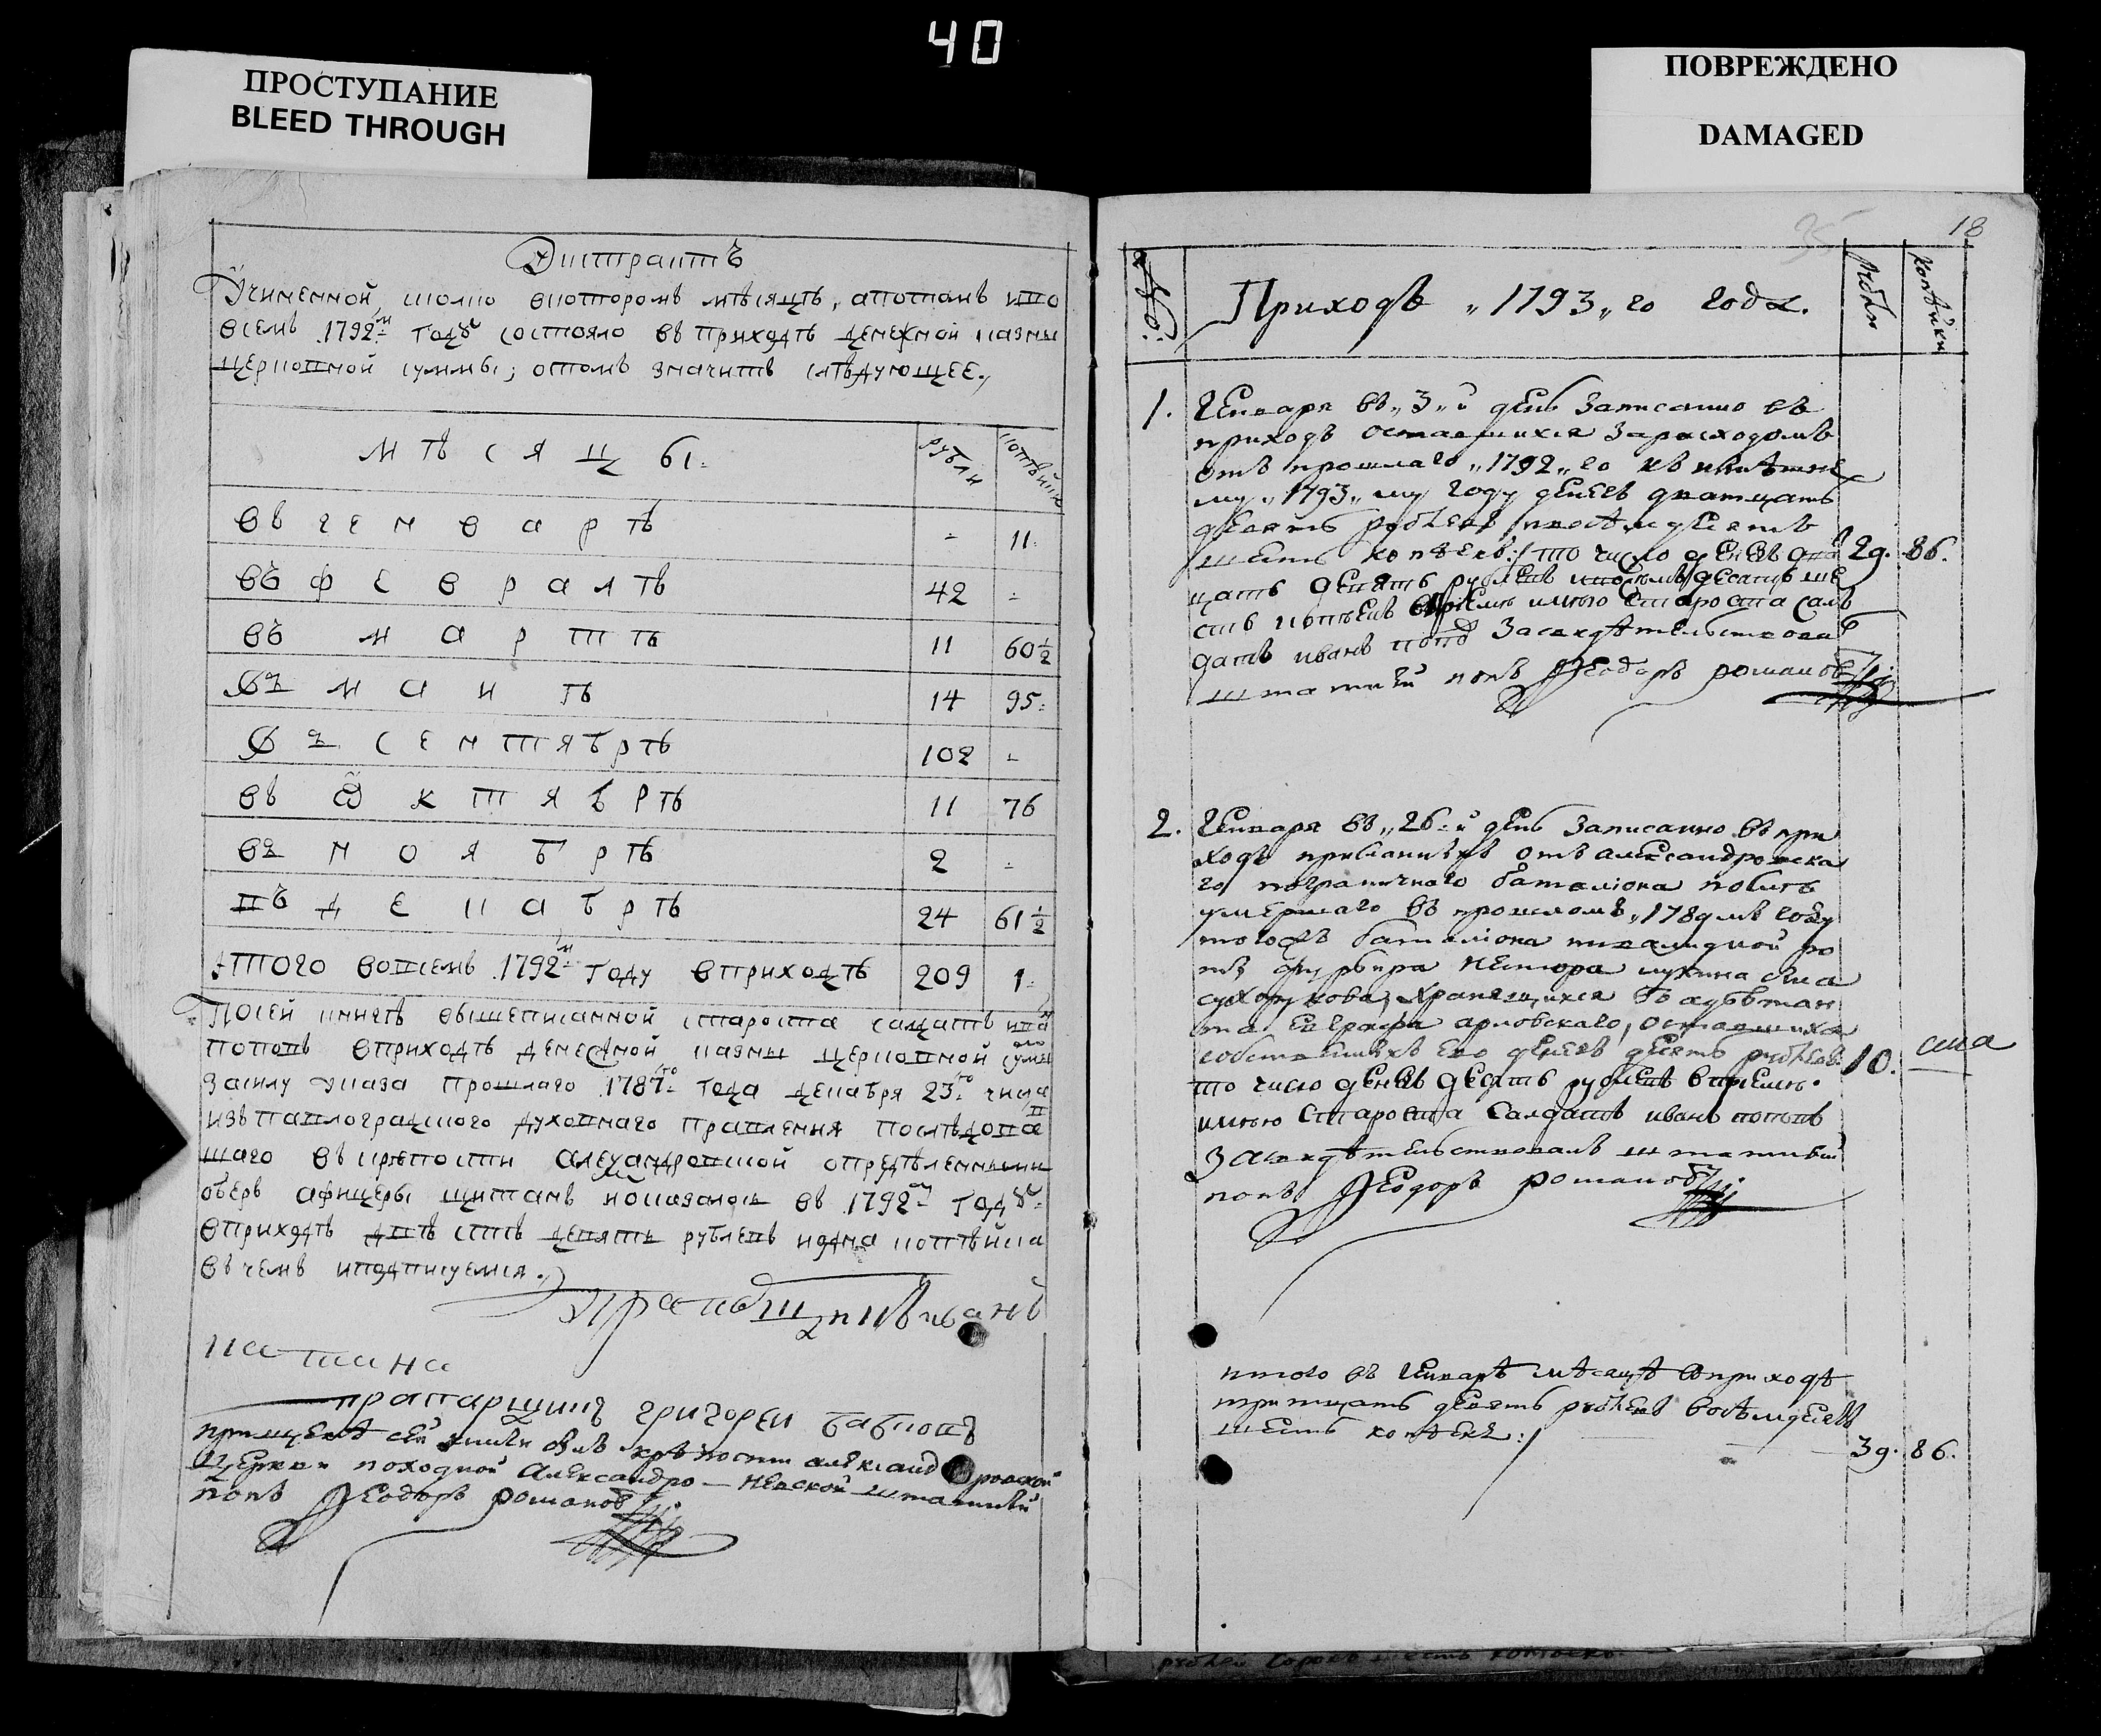 40
ПРОСТУПАНИЕ
BLEED THROUGH
ПОВРЕЖДЕНО
DAMAGED
Экстрактъ
Учиненной сколко вкоторомъ мѣсяцѣ, апотомъ иво
всемъ 1792м годꙋ состояло въ приходѣ денежной казны
церковной суммы; отомъ значитъ слѣдующее.
мѣсяцы.
рубли
копѣйки
въ генварѣ - 11
въ февралѣ 42 -
въ мартѣ 11 60½
въ маиѣ 14 95
въ сентябрѣ 102 -
въ октябрѣ 11 76
въ ноябрѣ 2 -
въ декабрѣ 24 61½
итого вовсемъ 1792м году вприходѣ 209 1
Посей книгѣ вышеписанной староста салдатъ
поповъ вприходѣ денежной казны церковной сумы
засилу указа прошлаго 1787го года декабря 23го числа
изъ павлоградского духовнаго правления послѣдова
шаго въ крѣпости александровской определенными
оберъ афицеры щитанъ ноказалось въ 1792м годꙋ
вприходѣ двѣстѣ девять рублевъ иодна копѣйка
въ чемъ иподписуемся.
Прапорщикъ иванъ
прапарщикъ григореи бабковъ
прищетѣ сей книги былъ крѣпости александровской
церкви походной Александро-Невской штатный
попъ Ѳеодоръ романовъ
35
18
№
Приходъ „1793„го года.
рубли
копѣйки
1. Генваря въ „3„й день записанно въ
приходъ оставшихся зарасходомъ
отъ прошлаго „1792„го къ нынѣшне
му „1793„му году денегъ дватцать
девять рублевъ восѣмдесятъ
шесть копѣекъ: то число денегъ два 29. 86.
цать девять рублевъ ивосѣмъдесатъ ше
сть копѣекъ вприемъ имѣю староста сал
датъ иванъ попов Засвидѣтельствовалъ
штатный попъ Ѳеодоръ романовъ
2. Генваря въ „26„й день записанно въ при
ходъ присланныхъ отъ александровска
го пограничнаго баталиона послѣ
умершаго въ прошломъ „1789мъ году
тогожъ баталиона инвалидной ро
ты фурьира нестора лукина сына
сухорукова, хранящихся въ адьютан
та евграфа арловскаго, оставшихся
собственныхъ его денегъ десять рублевъ: 10.
то число денегъ десать рублевъ вприемъ
имѣю староста салдатъ иванъ поповъ
Засвидѣтельствовалъ штатный
попъ Ѳеодоръ романовъ
итого въ генварѣ мѣсяцѣ вприходѣ
тритцать девять рублевъ восѣмдесятъ
шесть копѣекъ: 39. 86.
рублей сорокъ шесть копѣекъ